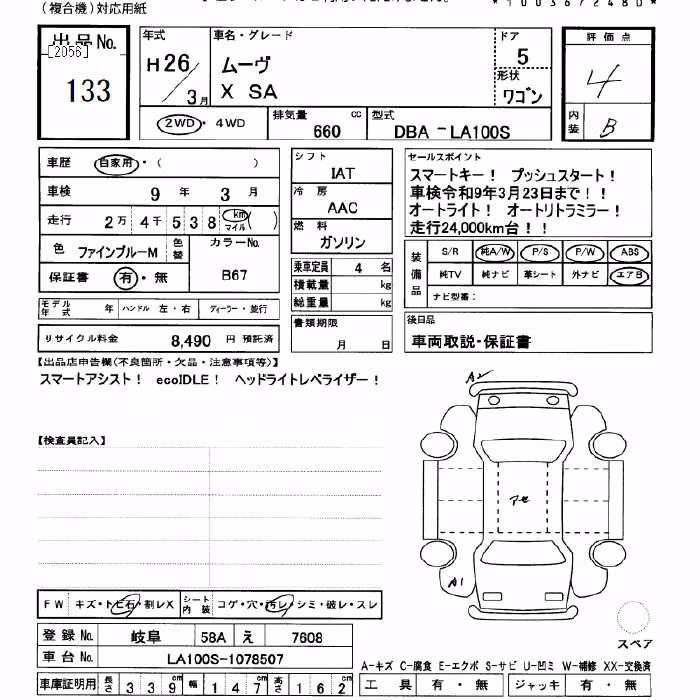 (複合機)対応用紙
*10036724 80*
出品No.
[2056]
133
年式
H26/3月
車名・グレード
ムーヴ
X SA
ドア
5
形状
ワゴン
評価点
4
内装
B
2WD・4WD
排気量 cc
660
型式
DBA-LA100S
車歴 自家用・( )
車検 9年 3月
走行 2万4千538 km マイル ( )
色 ファインブルーM 色替 カラーNo. B67
保証書 有・無
モデル年式 年 ハンドル 左・右 ディーラー・並行
リサイクル料金 8,490 円 預託済
シフト
IAT
冷房
AAC
燃料
ガソリン
乗車定員 4 名
積載量 kg
総重量 kg
書類期限
月 日
セールスポイント
スマートキー! プッシュスタート!
車検令和9年3月23日まで!!
オートライト! オートリトラミラー!
走行24,000km台!!
装備品 S/R 純A/W P/S P/W ABS
純TV 純ナビ 革シート 外ナビ エアB
ナビ型番:
後日品
車両取説・保証書
【出品店申告欄(不良箇所・欠品・注意事項等)】
スマートアシスト! ecoIDLE! ヘッドライトレベライザー!
【検査員記入】
アセ
A1
FW キズ・トビ石・割レX シート内装 コゲ・穴・汚レ・シミ・破レ・スレ
登録No. 岐阜 58A え 7608
車台No. LA100S-1078507
車庫証明用 長さ 339cm 幅 147cm 高さ 162cm
スペア
A-キズ C-腐食 E-エクボ S-サビ U-凹ミ W-補修 XX-交換済
工具 有・無 ジャッキ 有・無